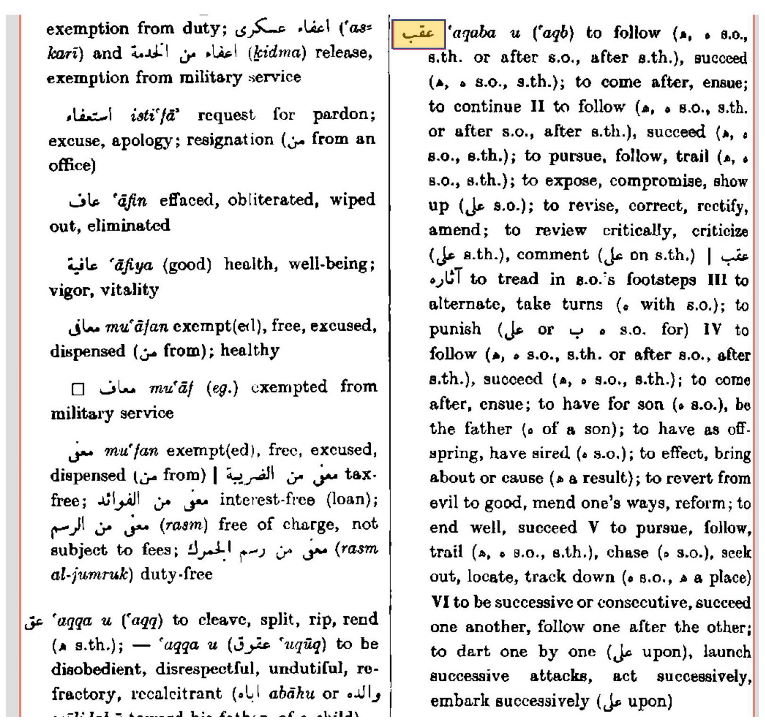 exemption from duty; اعفاء عسكرى (‘as-
karī) and اعفاء من الخدمة (ḵidma) release,
exemption from military service
استعفاء isti‘fā’ request for pardon;
excuse, apology; resignation (من from an
office)
عاف ‘āfin effaced, obliterated, wiped
out, eliminated
عافية ‘āfiya (good) health, well-being;
vigor, vitality
معافى mu‘āfan exempt(ed), free, excused,
dispensed (من from); healthy
□ معاف mu‘āf (eg.) exempted from
military service
معفى mu‘fan exempt(ed), free, excused,
dispensed (من from) | معفى من الضريبة tax-
free; معفى من الفوائد interest-free (loan);
معفى من الرسم (rasm) free of charge, not
subject to fees; معفى من رسم الجمرك (rasm
al-jumruk) duty-free
عق ‘aqqa u (‘aqq) to cleave, split, rip, rend
(ه s.th.); — ‘aqqa u (عقوق ‘uqūq) to be
disobedient, disrespectful, undutiful, re-
fractory, recalcitrant (اباه abāhu or والده
عقب ‘aqaba u (‘aqb) to follow (ه, ه s.o.,
s.th. or after s.o., after s.th.), succeed
(ه, ه s.o., s.th.); to come after, ensue;
to continue II to follow (ه, ه s.o., s.th.
or after s.o., after s.th.), succeed (ه, ه
s.o., s.th.); to pursue, follow, trail (ه, ه
s.o., s.th.); to expose, compromise, show
up (على s.o.); to revise, correct, rectify,
amend; to review critically, criticize
(على s.th.), comment (على on s.th.) | عقب
آثاره to tread in s.o.'s footsteps III to
alternate, take turns (ه with s.o.); to
punish (على or ب ه s.o. for) IV to
follow (ه, ه s.o., s.th. or after s.o., after
s.th.), succeed (ه, ه s.o., s.th.); to come
after, ensue; to have for son (ه s.o.), be
the father (ه of a son); to have as off-
spring, have sired (ه s.o.); to effect, bring
about or cause (ه a result); to revert from
evil to good, mend one's ways, reform; to
end well, succeed V to pursue, follow,
trail (ه, ه s.o., s.th.), chase (ه s.o.), seek
out, locate, track down (ه s.o., ه a place)
VI to be successive or consecutive, succeed
one another, follow one after the other;
to dart one by one (على upon), launch
successive attacks, act successively,
embark successively (على upon)